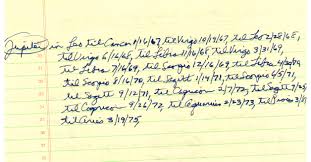 Jupiter in Leo til Cancer 1/16/67, til Virgo 10/19/67, til Leo 2/28/68,
til Virgo 6/16/68, til Libra 11/16/68, til Virgo 3/31/69,
til Libra 7/16/69, til Scorpio 12/16/69, til Libra
til Scorpio 8/16/70, til Sagitt 1/14/71, til Scorpio 6/5/71,
til Sagitt 9/12/71, til Capricorn 2/7/72, til Sagitt
til Capricorn 9/26/72, til Aquarius 2/23/73, til
til Aries 3/19/75